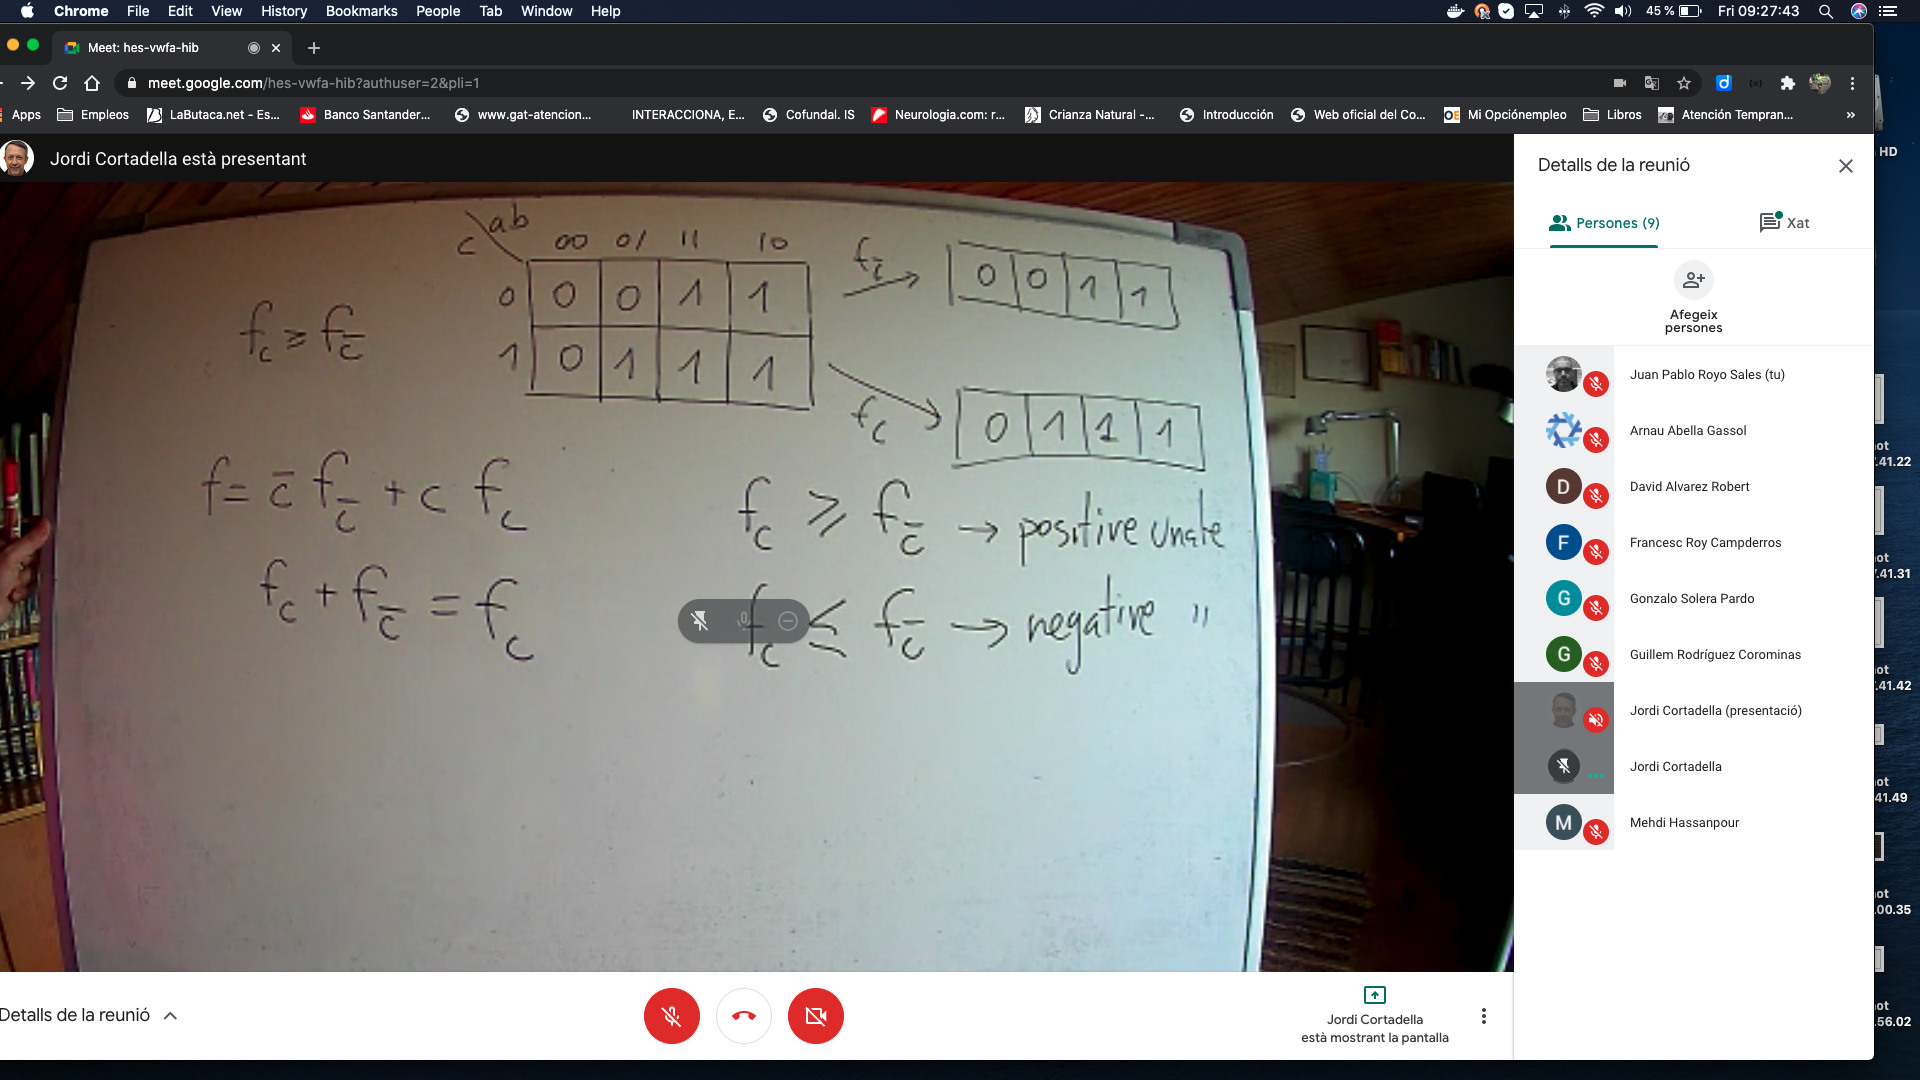 Chrome File Edit View History Bookmarks People Tab Window Help 45 % Fri 09:27:43
Meet: hes-vwfa-hib
meet.google.com/hes-vwfa-hib?authuser=2&pli=1
Apps Empleos LaButaca.net - Es... Banco Santander... www.gat-atencion... INTERACCIONA, E... Cofundal. IS Neurologia.com: r... Crianza Natural -... Introducción Web oficial del Co... Mi Opciónempleo Libros Atención Tempran... »
HD
Jordi Cortadella està presentant
c \ ab
00 01 11 10
0 0 0 1 1
1 0 1 1 1
f_c̄ → 0 0 1 1
f_c → 0 1 1 1
f_c ≥ f_c̄
f = c̄ f_c̄ + c f_c
f_c + f_c̄ = f_c
f_c ≥ f_c̄ → positive unate
f_c ≤ f_c̄ → negative "
Detalls de la reunió
Persones (9) Xat
Afegeix
persones
Juan Pablo Royo Sales (tu)
Arnau Abella Gassol
D David Alvarez Robert
F Francesc Roy Campderros
G Gonzalo Solera Pardo
G Guillem Rodríguez Corominas
Jordi Cortadella (presentació)
Jordi Cortadella
M Mehdi Hassanpour
ot
.41.22
ot
.41.31
ot
.41.42
ot
41.49
ot
.00.35
ot
.56.02
Detalls de la reunió
Jordi Cortadella
està mostrant la pantalla